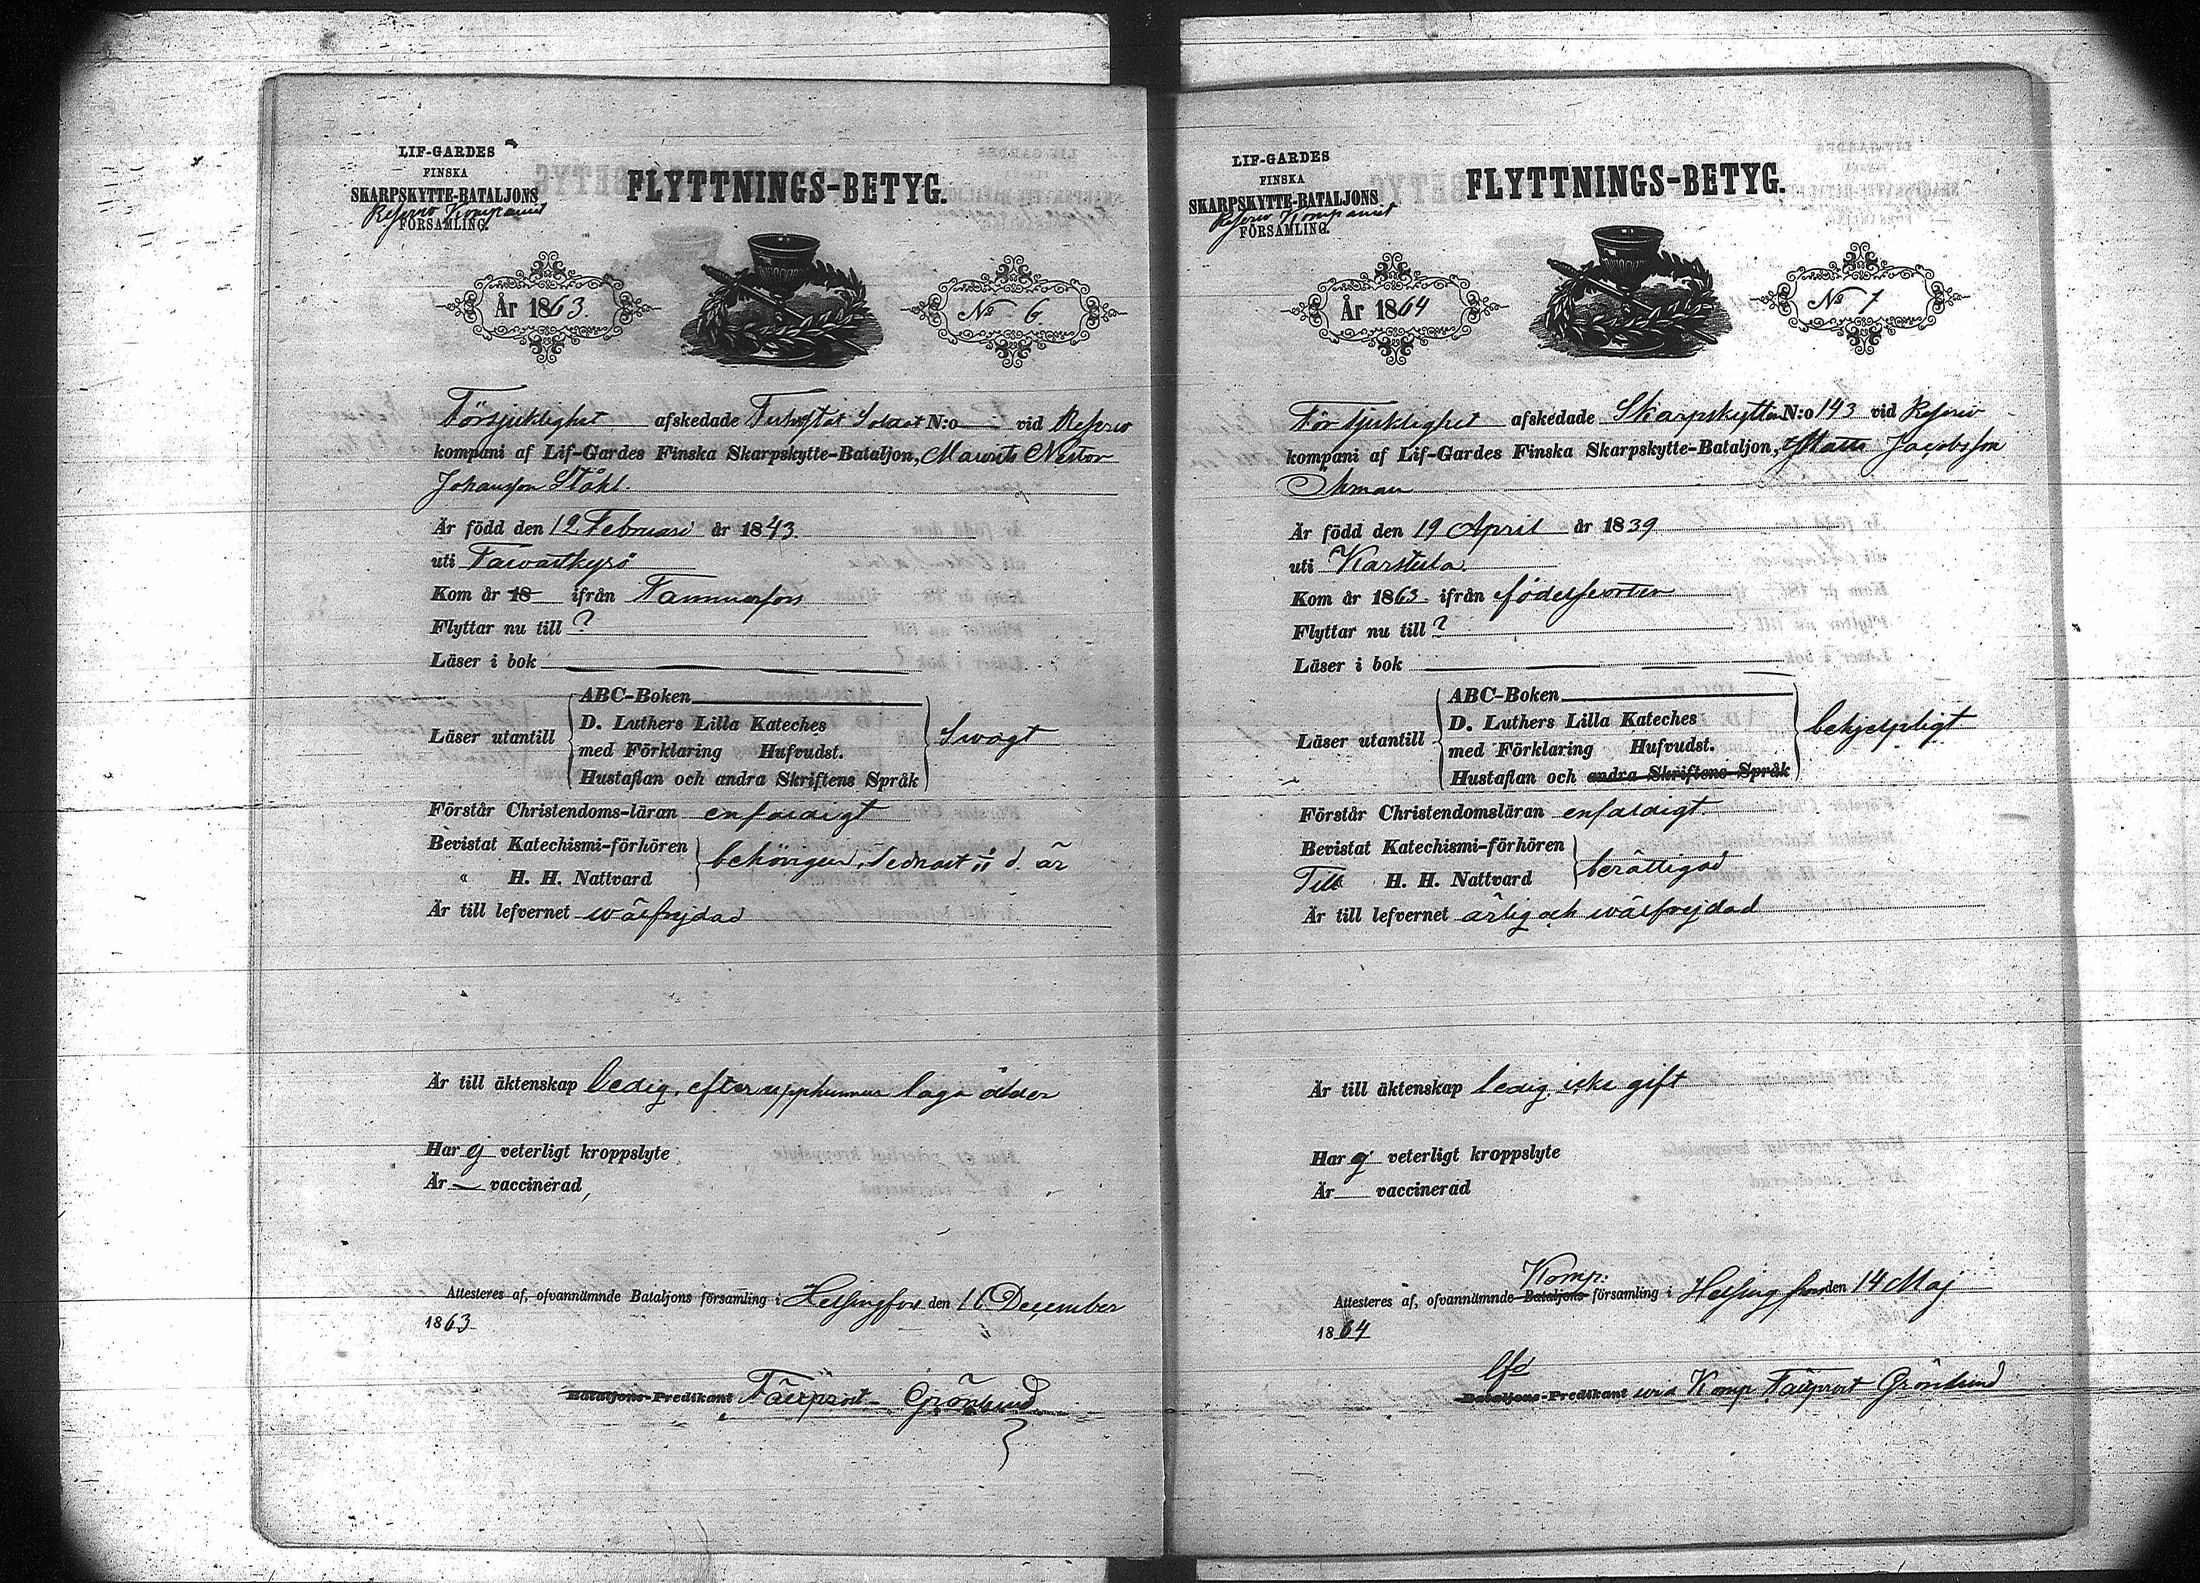 LIF-GARDES
FINSKA
SKARPSKYTTE-BATALJONS
Reserv Kompaniet
FÖRSAMLING.
FLYTTNINGS-BETYG.
År 1863.
No 6.
För sjuklighet afskedade Soldat N:o vid Reserv
kompani af Lif-Gardes Finska Skarpskytte-Bataljon, Maurits Nestor
Johansson Ståhl.
Är född den 12 Februari år 1843.
uti Tavastkyrö
Kom år 18 ifrån Tammerfors
Flyttar nu till ?
Läser i bok
Läser utantill
ABC-Boken
D. Luthers Lilla Kateches
med Förklaring Hufvudst.
Hustaflan och andra Skriftens Språk
Swagt
Förstår Christendoms-läran enfaldigt
Bevistat Katechismi-förhören
" H. H. Nattvard
behörigen, sednast d. år
Är till lefvernet wälfrejdad
Är till äktenskap ledig, efter uppkunnen laga ålder
Har ej veterligt kroppslyte
Är vaccinerad,
Attesteres af, ofvannämnde Bataljons församling i Helsingfors den 16 December
1863
Bataljons-Predikant Fältprost Grönlund
LIF-GARDES
FINSKA
SKARPSKYTTE-BATALJONS
Reserv Kompaniet
FÖRSAMLING.
FLYTTNINGS-BETYG.
År 1864
No 1
För sjuklighet afskedade Skarpskytten N:o 143 vid Reserv
kompani af Lif-Gardes Finska Skarpskytte-Bataljon, Matts Jacobsson
Öhman
Är född den 19 April år 1839
uti Karstula.
Kom år 1863. ifrån födelseorten
Flyttar nu till ?
Läser i bok
Läser utantill
ABC-Boken
D. Luthers Lilla Kateches
med Förklaring Hufvudst.
Hustaflan och andra Skriftens Språk
behjelpligt
Förstår Christendomsläran enfaldigt.
Bevistat Katechismi-förhören
Till H. H. Nattvard
berättigad
Är till lefvernet ärlig och wälfrejdad
Är till äktenskap ledig, icke gift
Har ej veterligt kroppslyte
Är vaccinerad
Komp:
Attesteres af, ofvannämnde Bataljons församling i Helsingfors den 14 Maj
1864
Bataljons-Predikant wid Komp Fältprost Grönlund